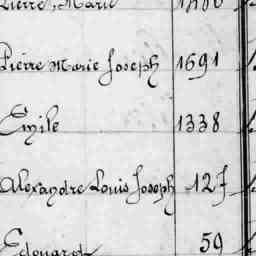 Pierre, Marie
Pierre Marie Joseph 1691
Emile 1338
Alexandre Louis Joseph 127
Edouard 59